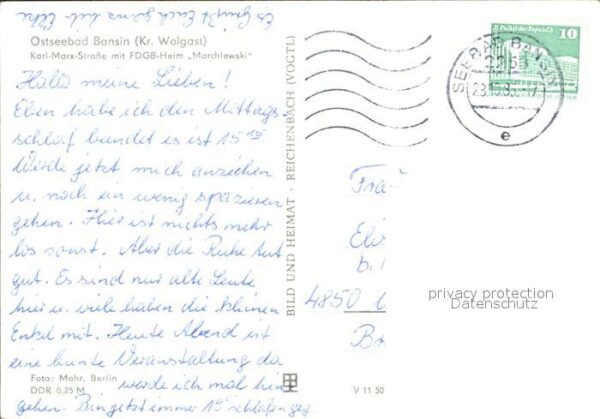 Es grüßt Euch ganz lieb Elke
Ostseebad Bansin (Kr. Wolgast)
Karl-Marx-Straße mit FDGB-Heim „Marchlewski"
Hallo meine Lieben!
Eben habe ich den Mittags-
schlaf beendet es ist 15 15
Werde jetzt mich anziehen
u. noch ein wenig spazieren
gehen. Hier ist nichts mehr
los sonst. Aber die Ruhe tut
gut. Es sind nur alte Leute
hier u. viele haben die kleinen
Enkel mit. Heute Abend ist
eine bunte Veranstaltung da
werde ich mal hin
gehen. Bin jetzt immer
Foto: Mohr, Berlin
DDR 0,25 M
BILD UND HEIMAT · REICHENBACH (VOGTL)
V 11 50
Palast der Republik 10
SEEBAD BANSIN
2255
e
Frau
4850
privacy protection
Datenschutz